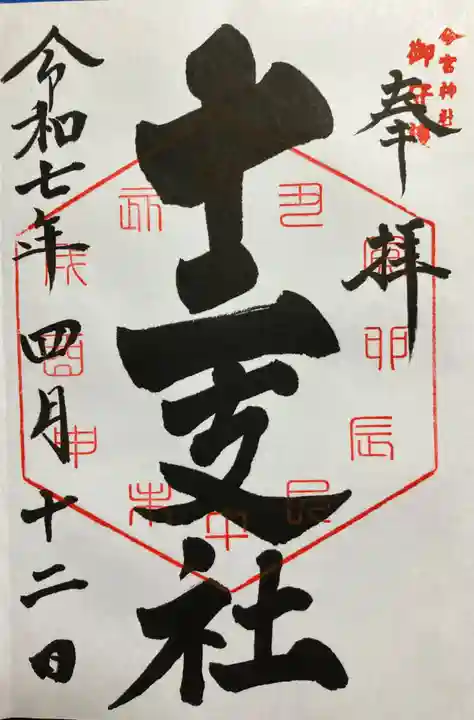 今宮神社
御
奉拝
十二支社
令和七年四月十二日
丑
卯
辰
巳
午
未
申
酉
戌
亥